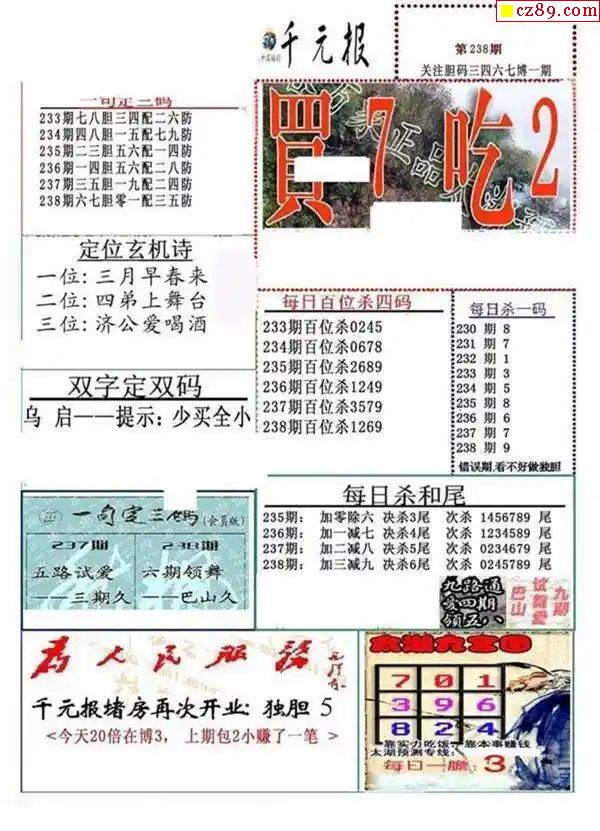 cz89.com
千元报
第238期
关注胆码三四六七博一期
一句定三码
233期七八胆三四配二六防
234期四八胆一五配七九防
235期二三胆五六配一四防
236期一四胆五六配二八防
237期三五胆一九配二四防
238期六七胆零一配三五防
買7吃2
定位玄机诗
一位: 三月早春来
二位: 四弟上舞台
三位: 济公爱喝酒
每日百位杀四码
233期百位杀0245
234期百位杀0678
235期百位杀2689
236期百位杀1249
237期百位杀3579
238期百位杀1269
每日杀一码
230 期 8
231 期 7
232 期 1
233 期 3
234 期 5
235 期 8
236 期 6
237 期 7
238 期 9
错误期,看不好做独胆
双字定双码
乌 启——提示: 少买全小
每日杀和尾
235期: 加零除六 决杀3尾 次杀 1456789 尾
236期: 加一减七 决杀4尾 次杀 1234589 尾
237期: 加二减八 决杀5尾 次杀 0234679 尾
238期: 加三减九 决杀6尾 次杀 0245789 尾
一句定三码(会员版)
237期
五路试爱
——三期久
238期
六期领舞
——巴山久
九路通
爱四期
领五八
九期
试舞爱
巴山
为人民服务
千元报堵房再次开业: 独胆 5
<今天20倍在博3, 上期包2小赚了一笔 >
太湖九宫图
7 0 1
3 9 6
8 2 4
靠实力吃饭 靠本事赚钱
太湖预测专线:
每日一胆: 3